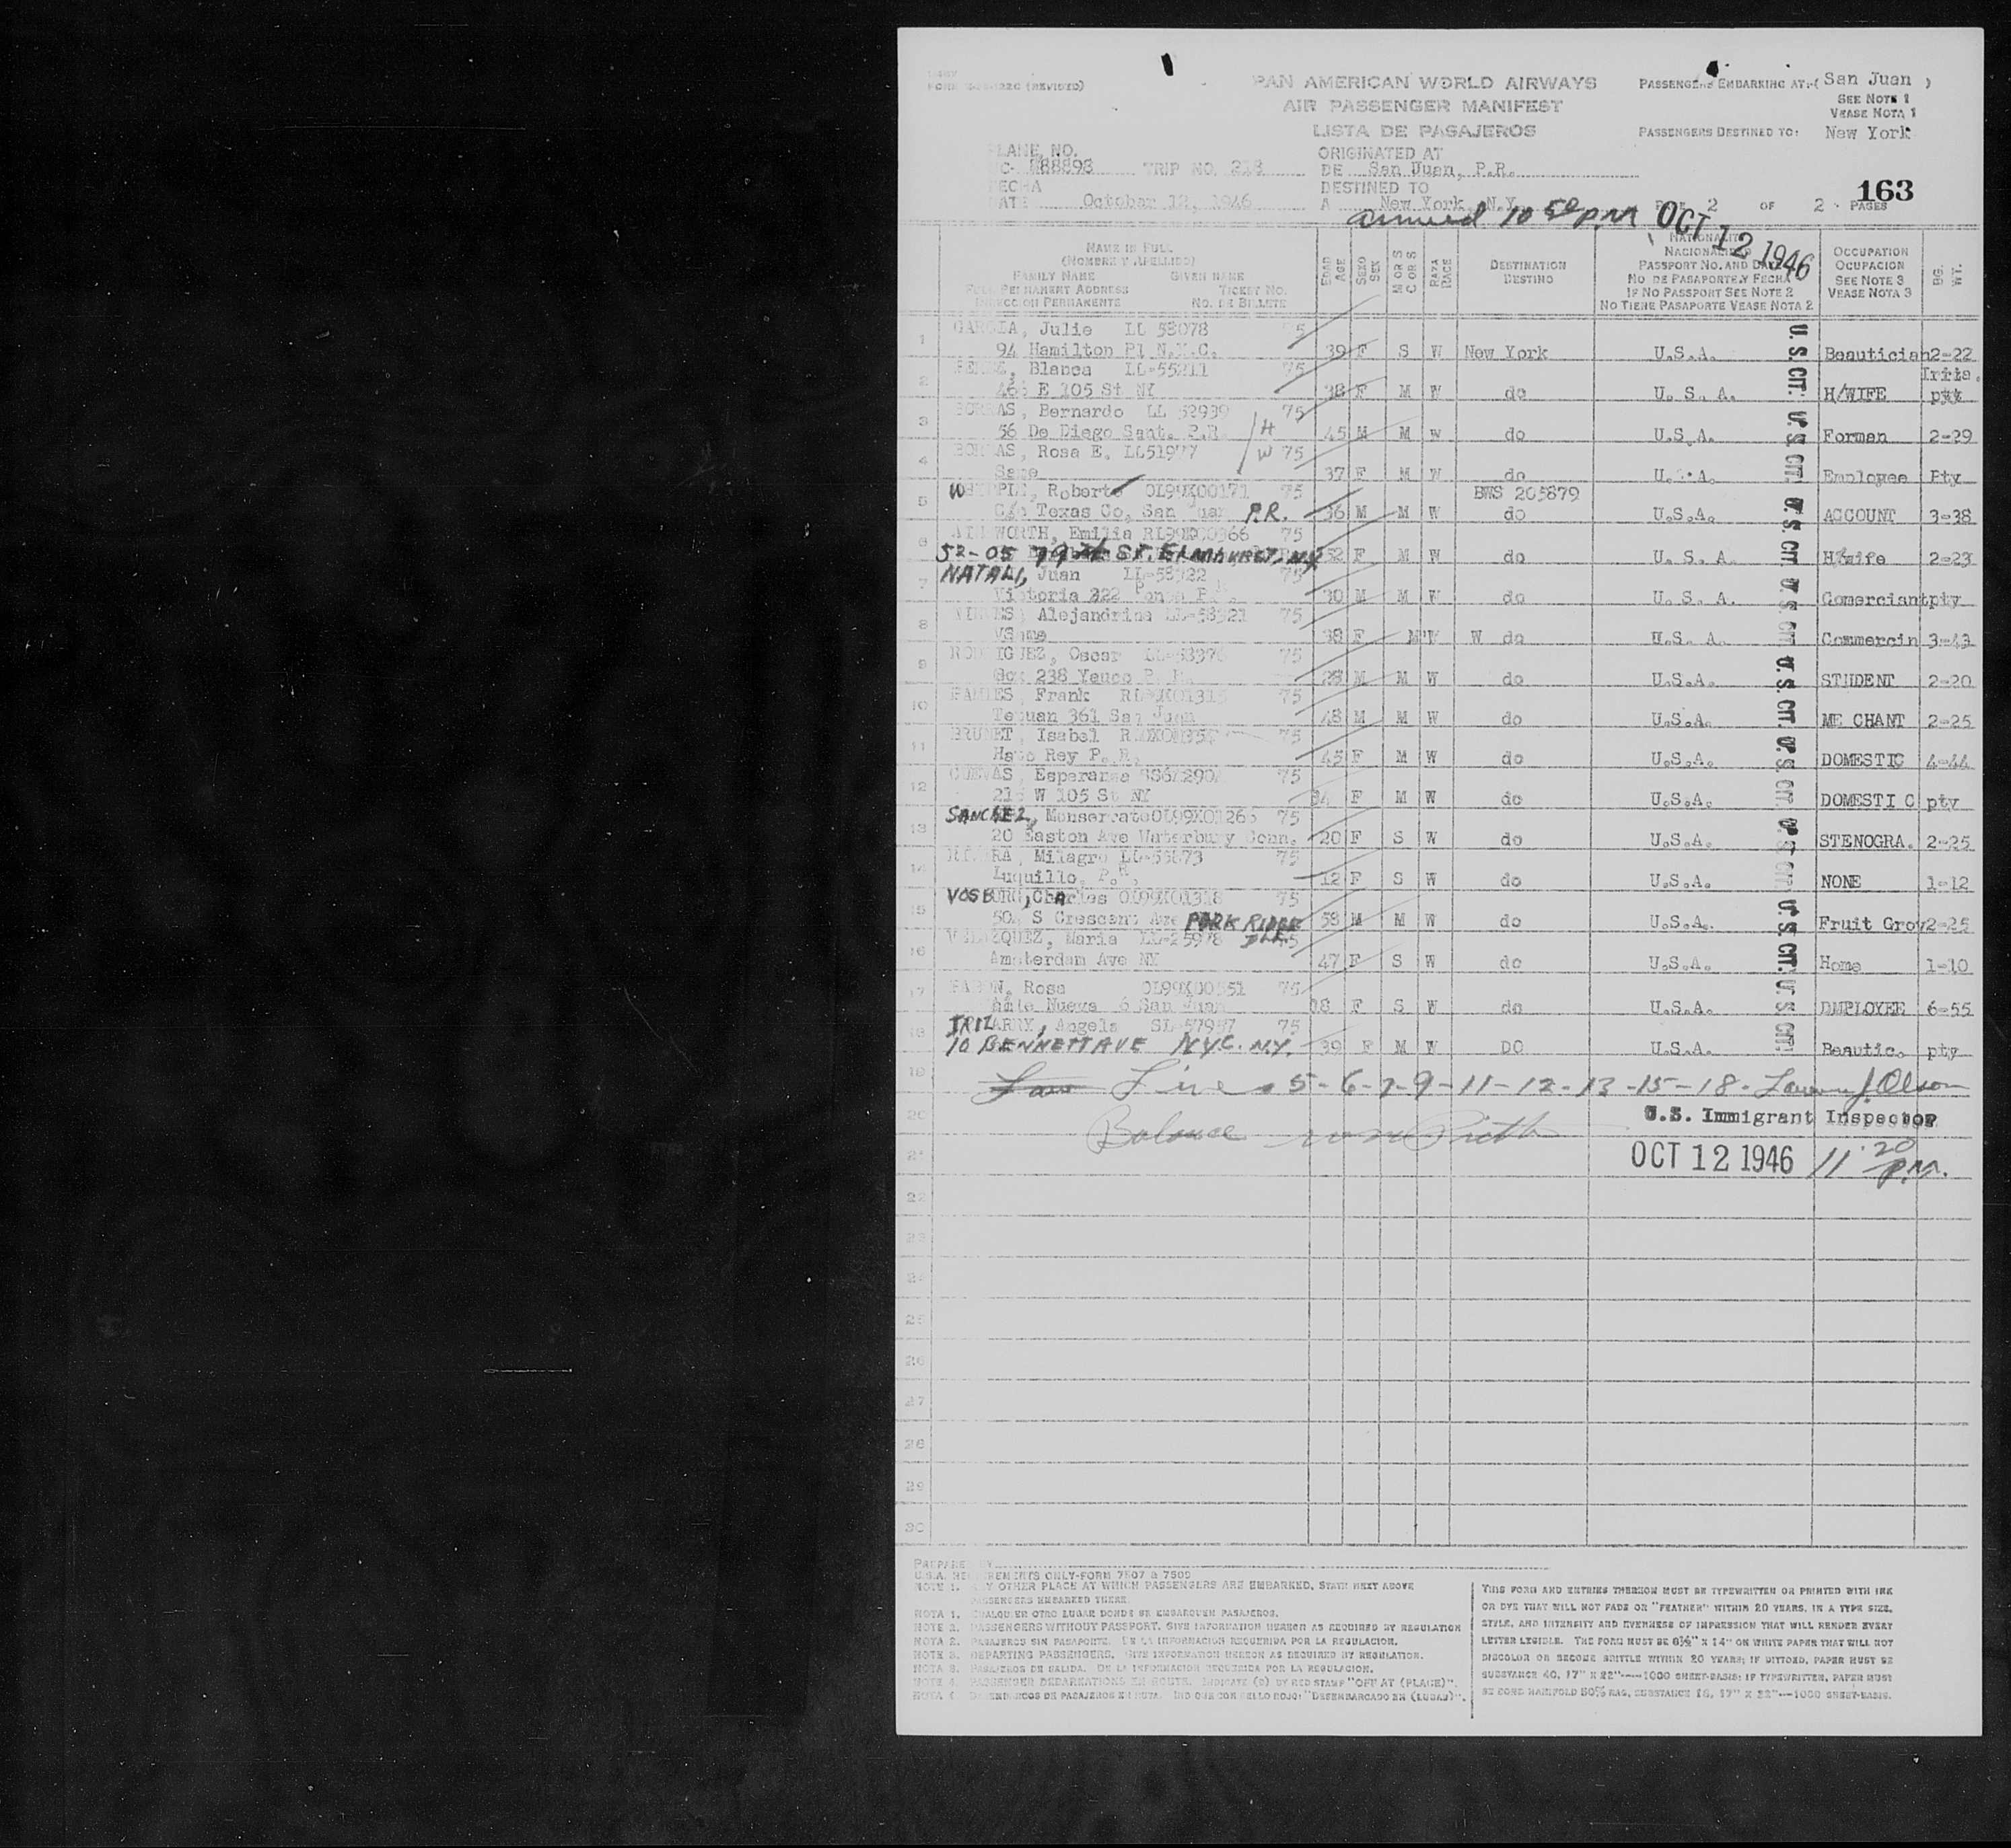 FORM (REVISED)
PAN AMERICAN WORLD AIRWAYS
AIR PASSENGER MANIFEST
LISTA DE PASAJEROS
PASSENGERS EMBARKING AT: ( San Juan )
SEE NOTE 1
VEASE NOTA 1
PASSENGERS DESTINED TO: New York
PLANE NO.
C- 88898 TRIP NO. 218
FECHA
DATE October 12, 1946
ORIGINATED AT
DE San Juan, P.R.
DESTINED TO
A New York, N.Y.
163
2 OF 2 PAGES
arrived 10 50 P.M OCT 12 1946
NAME IN FULL
(NOMBRE Y APELLIDO)
FAMILY NAME GIVEN NAME
FULL PERMANENT ADDRESS TICKET NO.
DIRECCION PERMANENTE NO. DE BILLETE
EDAD AGE
SEXO SEX
M OR S C OR S
RAZA RACE
DESTINATION DESTINO
NATIONALITY
NACIONALIDAD
PASSPORT NO. AND DATE
NO DE PASAPORTE Y FECHA
IF NO PASSPORT SEE NOTE 2
NO TIENE PASAPORTE VEASE NOTA 2
OCCUPATION
OCUPACION
SEE NOTE 3
VEASE NOTA 3
BG. WT.
1 GARCIA, Julie LL 58078 75
94 Hamilton Pl N.Y.C. 39 F S W New York U.S.A. U.S. CIT. Beautician 2-22
2 Blanca LL-55211 75
E 105 St NY 38 F M W do U. S. A. H/WIFE
3 BORRAS, Bernardo LL 52939 75
56 De Diego Sant. P.R. H 45 M M W do U.S.A. U.S. CIT. Forman 2-29
4 BORRAS, Rosa E. LL51977 W 75
Same 37 F M W do U.S.A. Employee Pty
5 WHIPPLE, Roberto OL99X00171 75 BWS 205879
C/o Texas Co, San Juan P.R. 36 M M W do U.S.A. U.S. CIT. ACCOUNT 3-38
6 Emilia 75
52-05 79th ST. ELMHURST. NY 52 F M W do U. S. A. H/wife 2-23
7 NATALI, Juan 75
Victoria 322 Ponce P.R. 30 M M W do U. S. A. U.S. CIT Comerciant pty
8 Alejandrina LL-58321 75
Same 38 F M W W do U.S. A. Commercin 3-43
9 RODRIGUEZ, Oscar 75
Box 238 Yauco P. R. 28 M M W do U.S.A. U.S. CIT. STUDENT 2-20
10 Frank 75
Tetuan 361 San Juan 48 M M W do U.S.A. ME CHANT 2-25
11 BRUNET, Isabel 75
Hato Rey P.R. 45 F M W do U.S.A. U.S. CIT. DOMESTIC 4-44
12 CUEVAS, Esperanza 75
W 105 St NY F M W do U.S.A. DOMESTI C pty
13 SANCHEZ, Monserrate 75
20 Easton Ave Waterbury Conn. 20 F S W do U.S.A. U.S. CIT STENOGRA. 2-25
14 RIVERA, Milagro 75
Luquillo, P.R. 12 F S W do U.S.A. NONE 1-12
15 VOSBURG, Charles OL99X01318 75
S Crescent Ave PARK RIDGE ILL. 58 M M W do U.S.A. U.S. CIT. Fruit Grow 2-25
16 VELAZQUEZ, Maria
Amsterdam Ave NY 47 F S W do U.S.A. Home 1-10
17 Rosa OL99X00551 75
Nueva 6 San Juan F S W do U.S.A. U.S. CIT. DMPLOYEE 6-55
18 IRIZARRY, Angela SL-57957 75
10 BENNETT AVE NYC. N.Y. 39 F M W DO U.S.A. Beautic. pty
19 Lines 5-6-7-9-11-12-13-15-18-
20 Balance
U.S. Immigrant Inspector
21 OCT 12 1946 11 20 P.M.
22
23
24
25
26
27
28
29
30
PREPARED BY
U.S.A. REQUIREMENTS ONLY-FORM 7507 & 7509
NOTE 1. ANY OTHER PLACE AT WHICH PASSENGERS ARE EMBARKED, STATE NEXT ABOVE
PASSENGERS EMBARKED THERE.
NOTA 1. CUALQUIER OTRO LUGAR DONDE SE EMBARQUEN PASAJEROS.
NOTE 2. PASSENGERS WITHOUT PASSPORT. GIVE INFORMATION HEREON AS REQUIRED BY REGULATION
NOTA 2. PASAJEROS SIN PASAPORTE. DE LA INFORMACION REQUERIDA POR LA REGULACION.
NOTE 3. DEPARTING PASSENGERS. GIVE INFORMATION HEREON AS REQUIRED BY REGULATION.
NOTA 3. PASAJEROS DE SALIDA. DE LA INFORMACION REQUERIDA POR LA REGULACION.
NOTE 4. PASSENGER DEBARKATIONS EN ROUTE. INDICATE (D) BY RED STAMP "OFF AT (PLACE)".
THIS FORM AND ENTRIES THEREON MUST BE TYPEWRITTEN OR PRINTED WITH INK
OR DYE THAT WILL NOT FADE OR "FEATHER" WITHIN 20 YEARS, IN A TYPE SIZE,
STYLE, AND INTENSITY AND EVENNESS OF IMPRESSION THAT WILL RENDER EVERY
LETTER LEGIBLE. THE FORM MUST BE 8½" X 14" ON WHITE PAPER THAT WILL NOT
DISCOLOR OR BECOME BRITTLE WITHIN 20 YEARS; IF DITTOED, PAPER MUST BE
SUBSTANCE 40, 17" X 22"---1000 SHEET-BASIS; IF TYPEWRITTEN, PAPER MUST
BE BOND MANIFOLD 50% RAG, SUBSTANCE 16, 17" X 22"---1000 SHEET-BASIS.